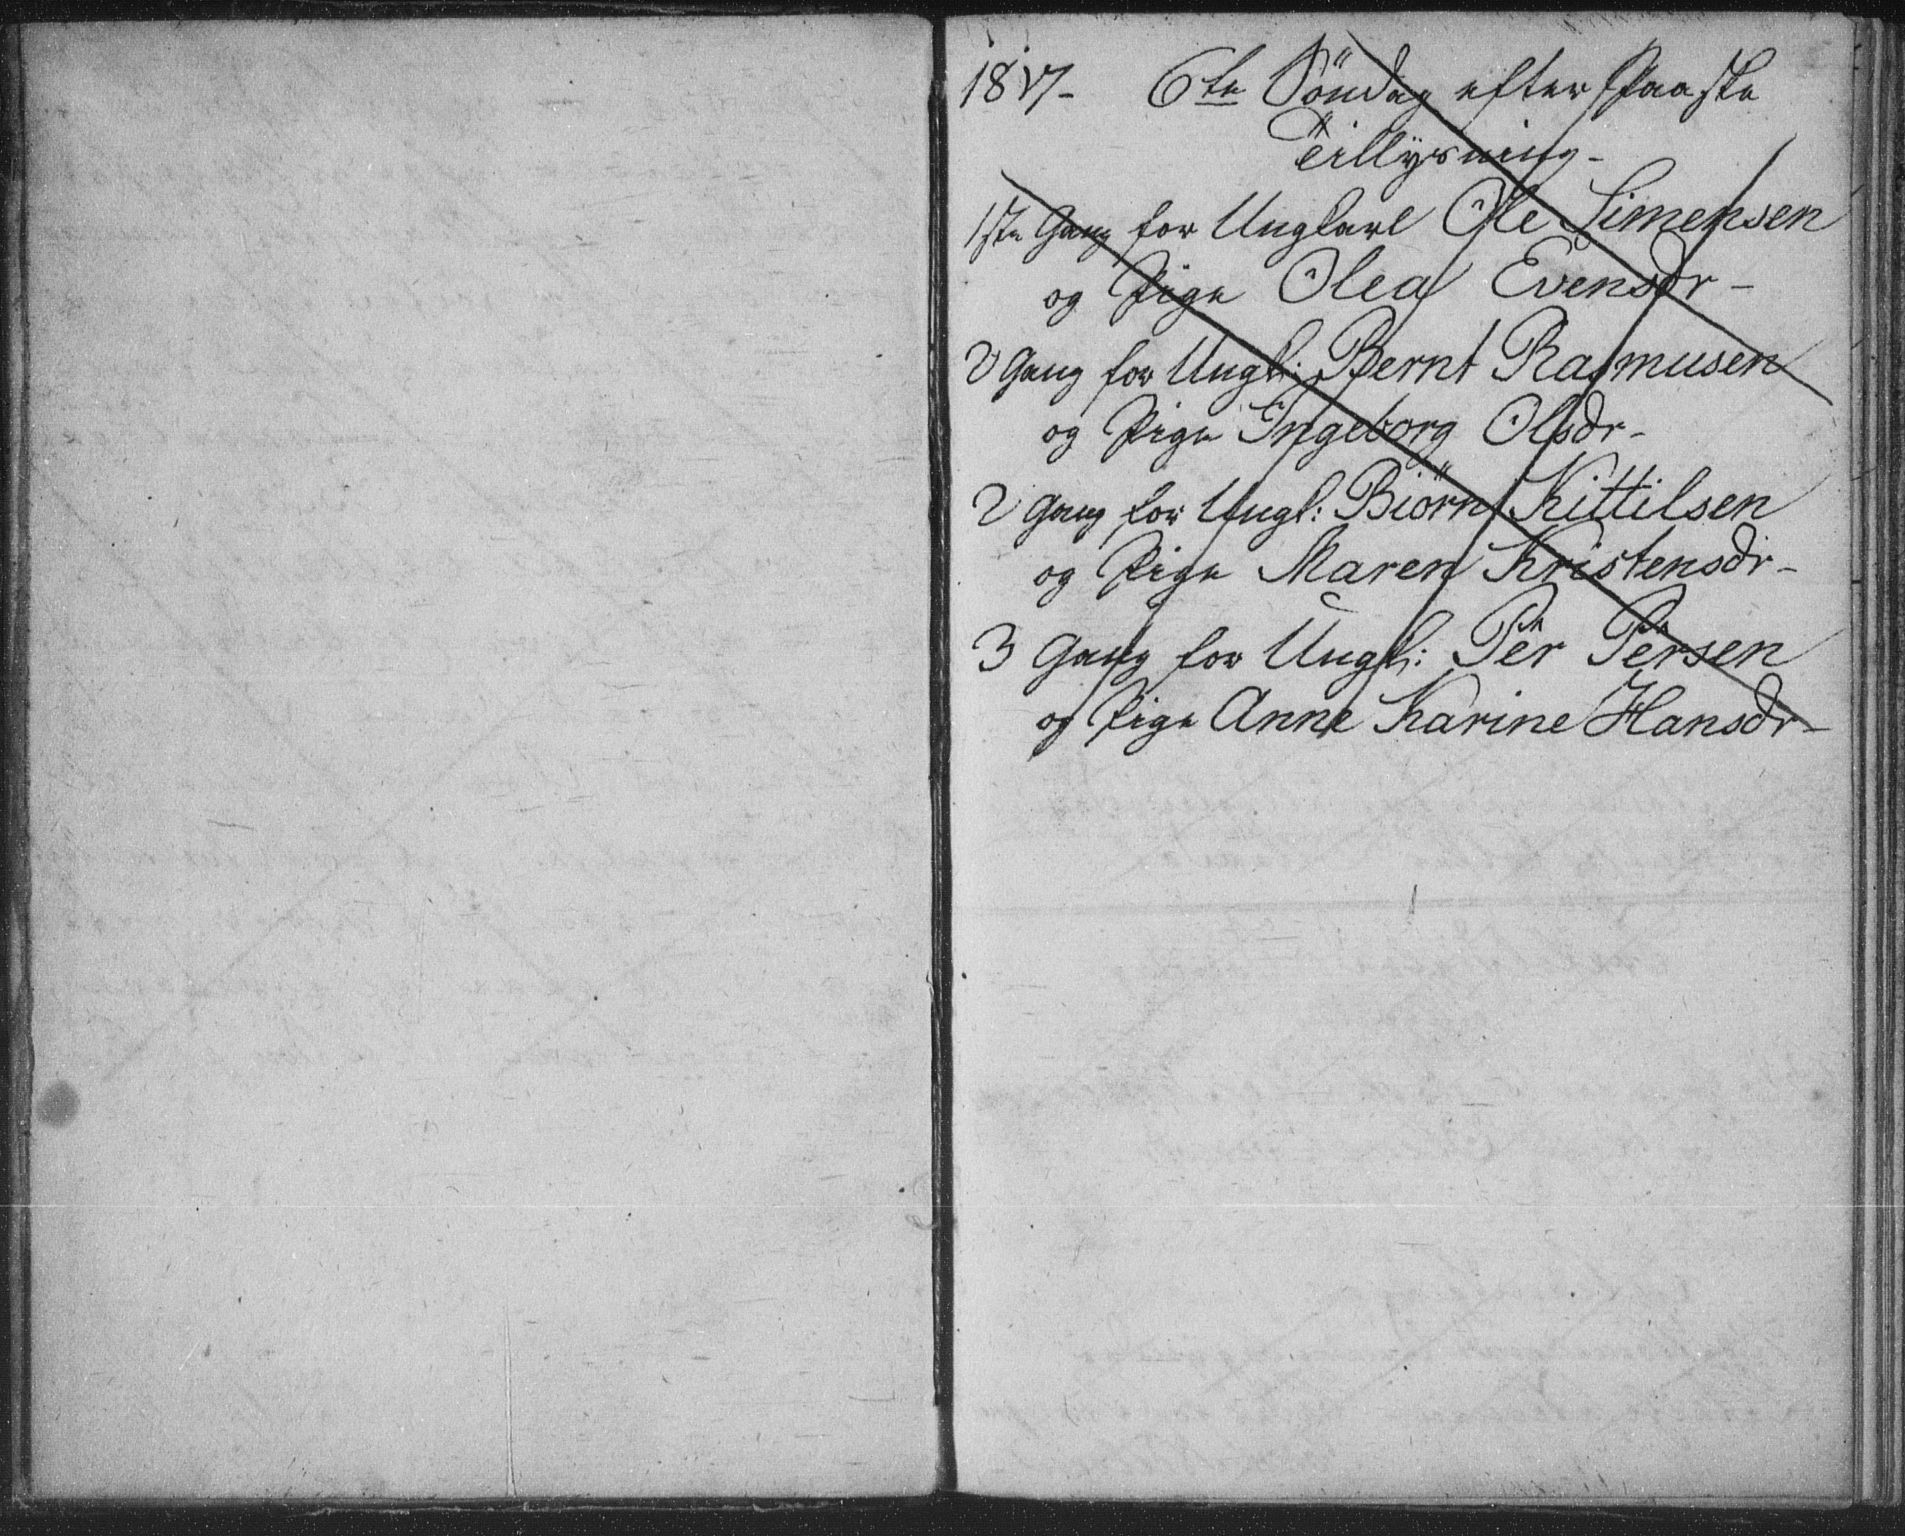 6te Söndag efter Paaske
Tillysning -
1ste Gang for Ungkarl Ole Simensen
og Pige Olea Evensdr -
2 Gang for Ungk: Bernt Rasmusen
og Pige Ingeborg Olsdr -
2 Gang for Ungk: Biörn Kittilsen
og Pige Maren Kristensdr -
3 Gang for Ungk: Per Persen
og Pige Anne Karine Hansdr -